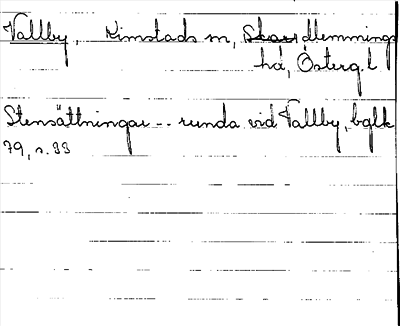 Vallby, Kimstads sn, Memmings
hd, Österg. l
Stensättningar -- runda vid Vallby, bglk
79, s. 33